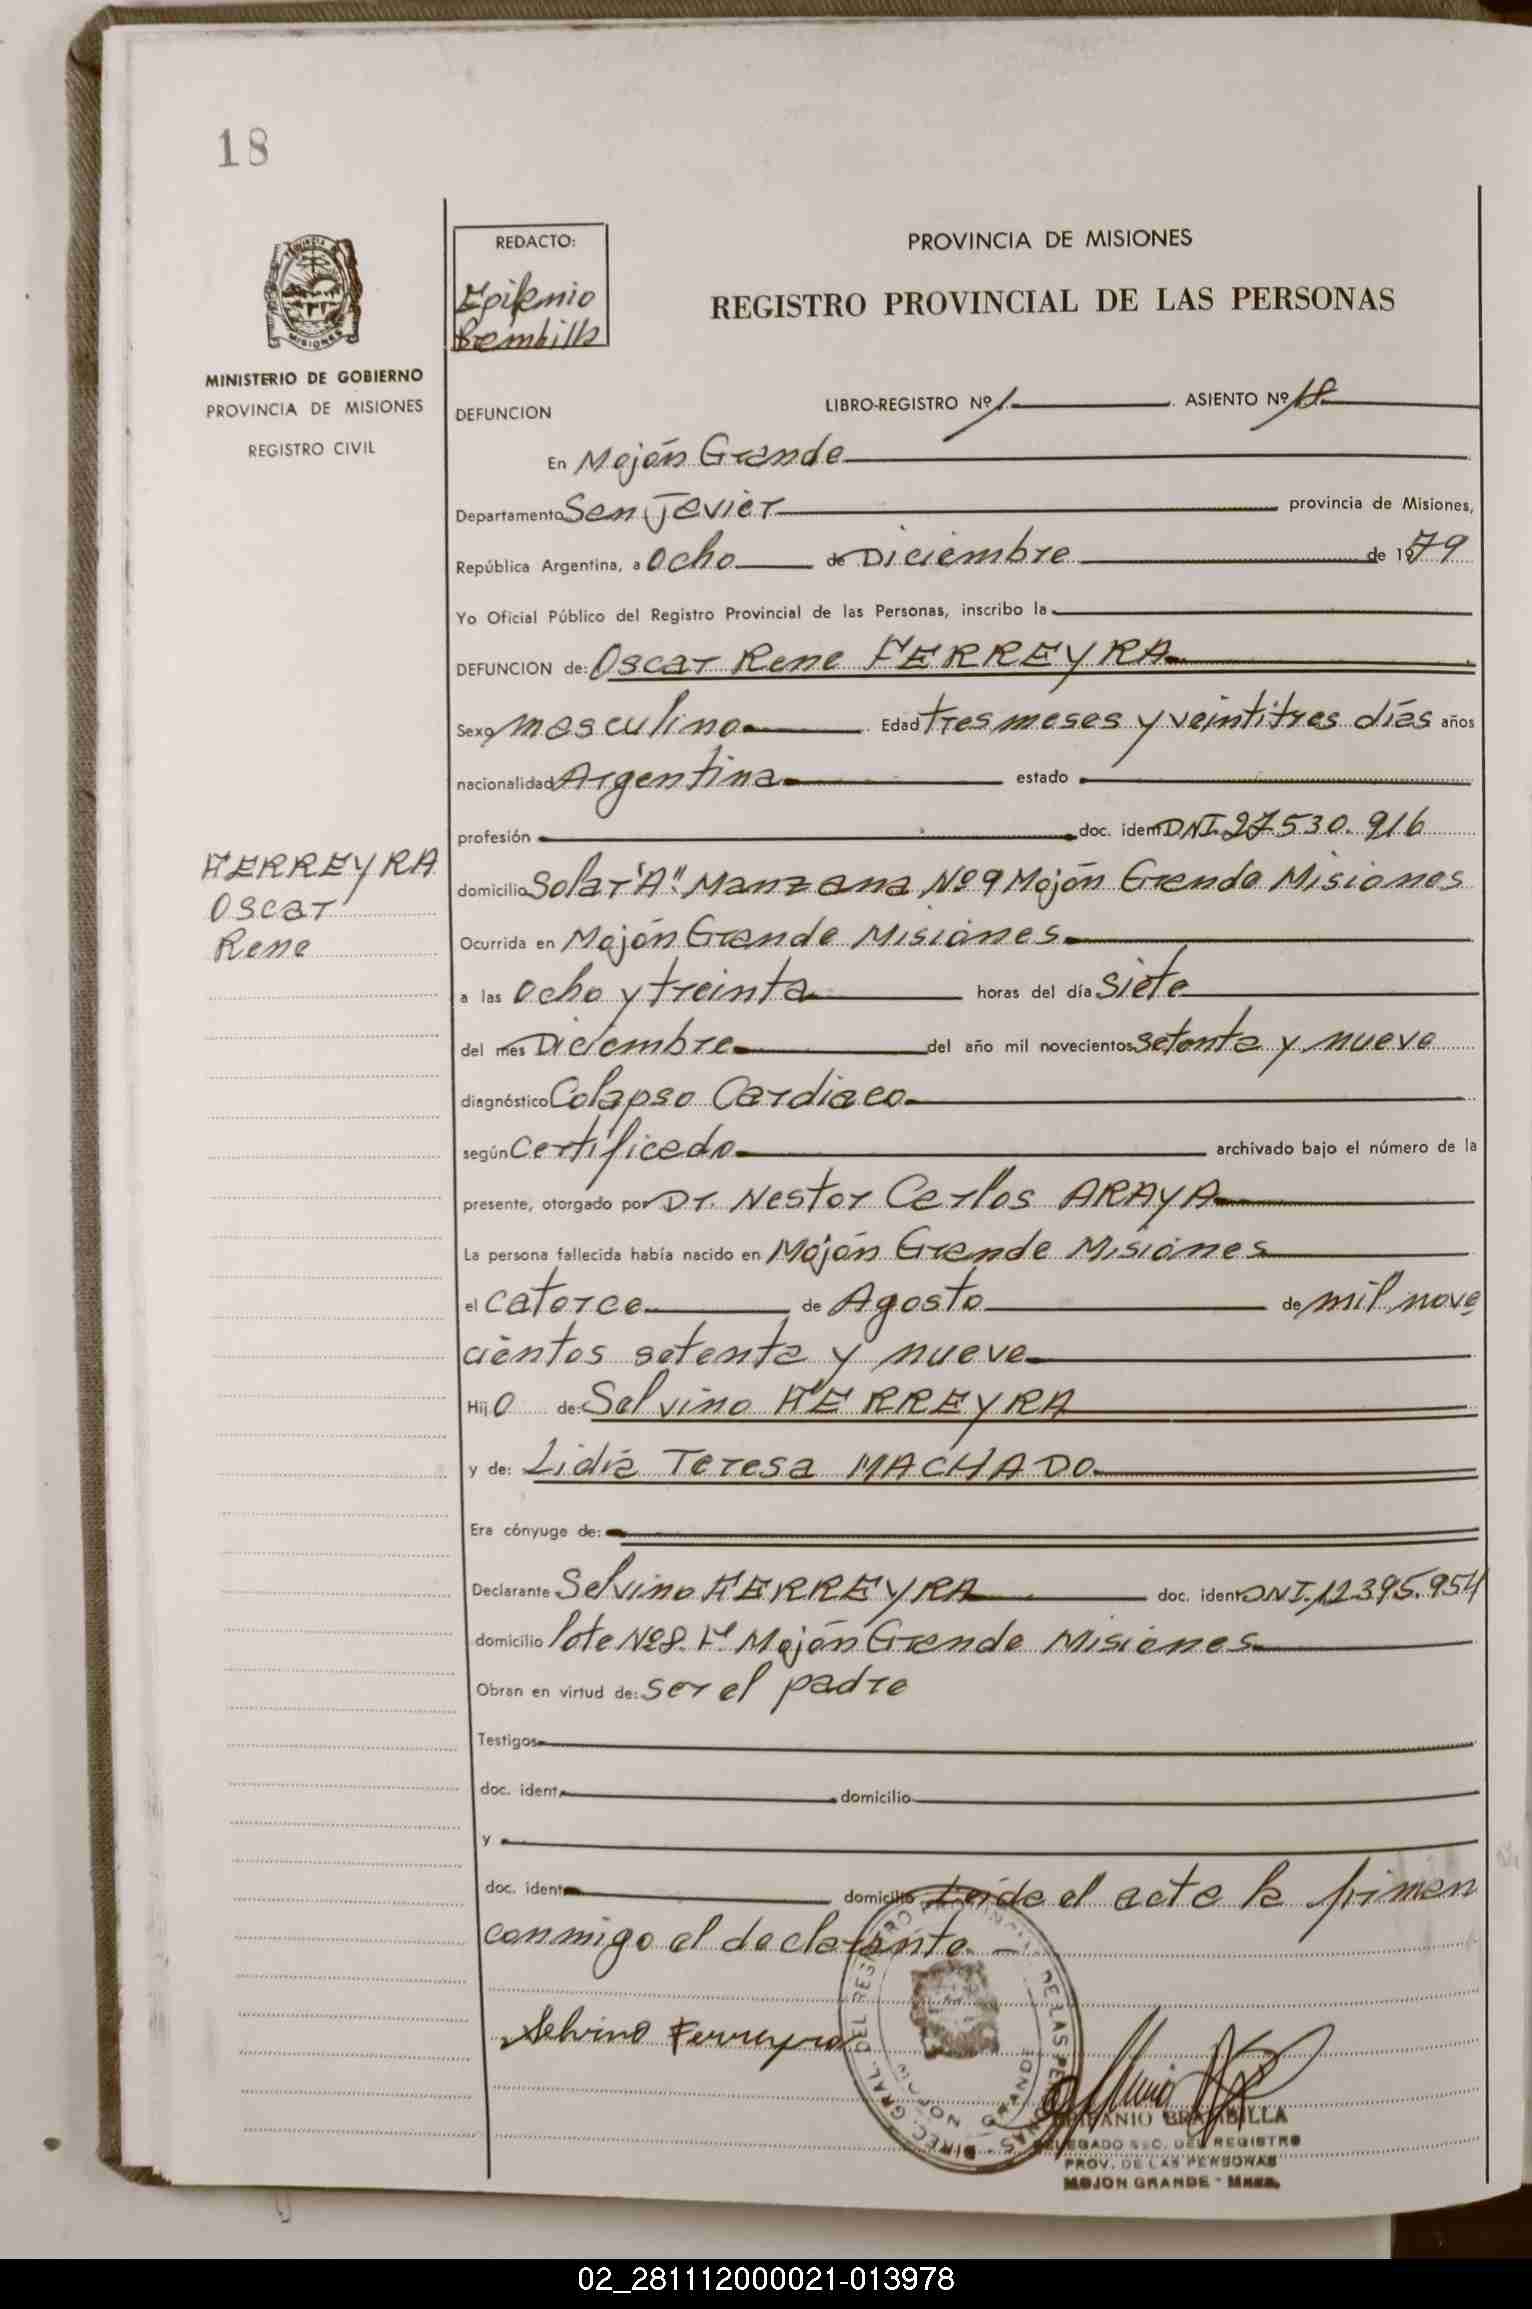 18
MINISTERIO DE GOBIERNO
PROVINCIA DE MISIONES
REGISTRO CIVIL
FERREYRA
Oscar
Rene
REDACTO:
Epifanio
Brambilla
PROVINCIA DE MISIONES
REGISTRO PROVINCIAL DE LAS PERSONAS
DEFUNCION LIBRO-REGISTRO Nº 1 ASIENTO Nº 18
En Mojón Grande
Departamento San Javier provincia de Misiones,
República Argentina, a ocho de Diciembre de 1979
Yo Oficial Público del Registro Provincial de las Personas, inscribo la
DEFUNCION de: Oscar Rene FERREYRA
Sexo masculino Edad tres meses y veintitres días años
nacionalidad Argentina estado
profesión doc. ident DNI. 27.530.916
domicilio Solar "A" Manzana Nº 9 Mojón Grande Misiones
Ocurrida en Mojón Grande Misiones
a las ocho y treinta horas del día siete
del mes Diciembre del año mil novecientos setenta y nueve
diagnóstico Colapso Cardiaco
según certificado archivado bajo el número de la
presente, otorgado por Dr. Nestor Carlos ARAYA
La persona fallecida había nacido en Mojón Grande Misiones
el catorce de Agosto de mil nove
cientos setenta y nueve
Hijo de: Selvino FERREYRA
y de: Lidia Teresa MACHADO
Era cónyuge de:
Declarante Selvino FERREYRA doc. ident DNI. 12.395.954
domicilio lote Nº 8. Mojón Grande Misiones
Obran en virtud de: ser el padre
Testigos
doc. ident. domicilio
y
doc. ident domicilio Leida el acta la firman
conmigo el declarante. —
Selvino Ferreyra
DIREC. GRAL. DEL REGISTRO PROVINCIAL DE LAS PERSONAS
MOJON GRANDE
EPIFANIO BRAMBILLA
DELEGADO SEC. DEL REGISTRO
PROV. DE LAS PERSONAS
MOJON GRANDE - Mnes.
02_281112000021-013978